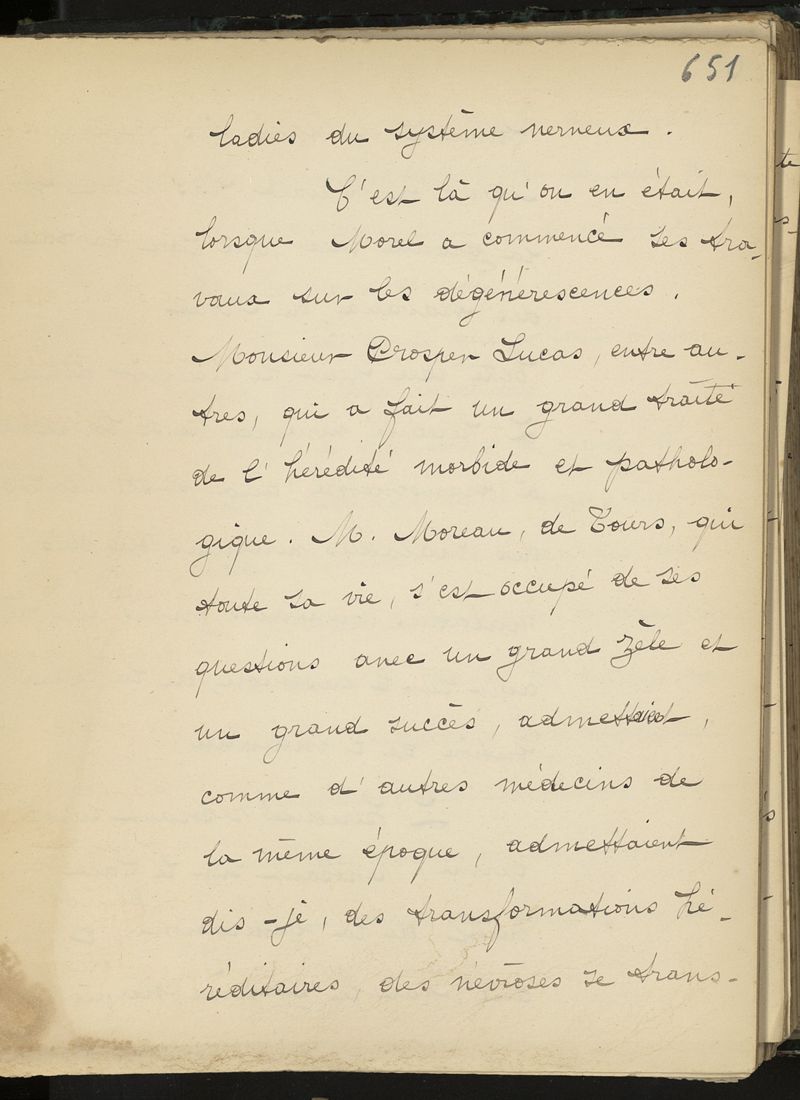 651
ladies du système nerveux.
C'est là qu'on en était,
lorsque Morel a commencé ses tra-
vaux sur les dégénérescences.
Monsieur Prosper Lucas, entre au-
tres, qui a fait un grand traité
de l'hérédité morbide et patholo-
gique. M. Moreau, de Tours, qui
toute sa vie, s'est occupé de ses
questions avec un grand zèle et
un grand succès, admettait,
comme d'autres médecins de
la même époque, admettaient
dis-je, des transformations hé-
réditaires, des névroses se trans-
te
s-
s